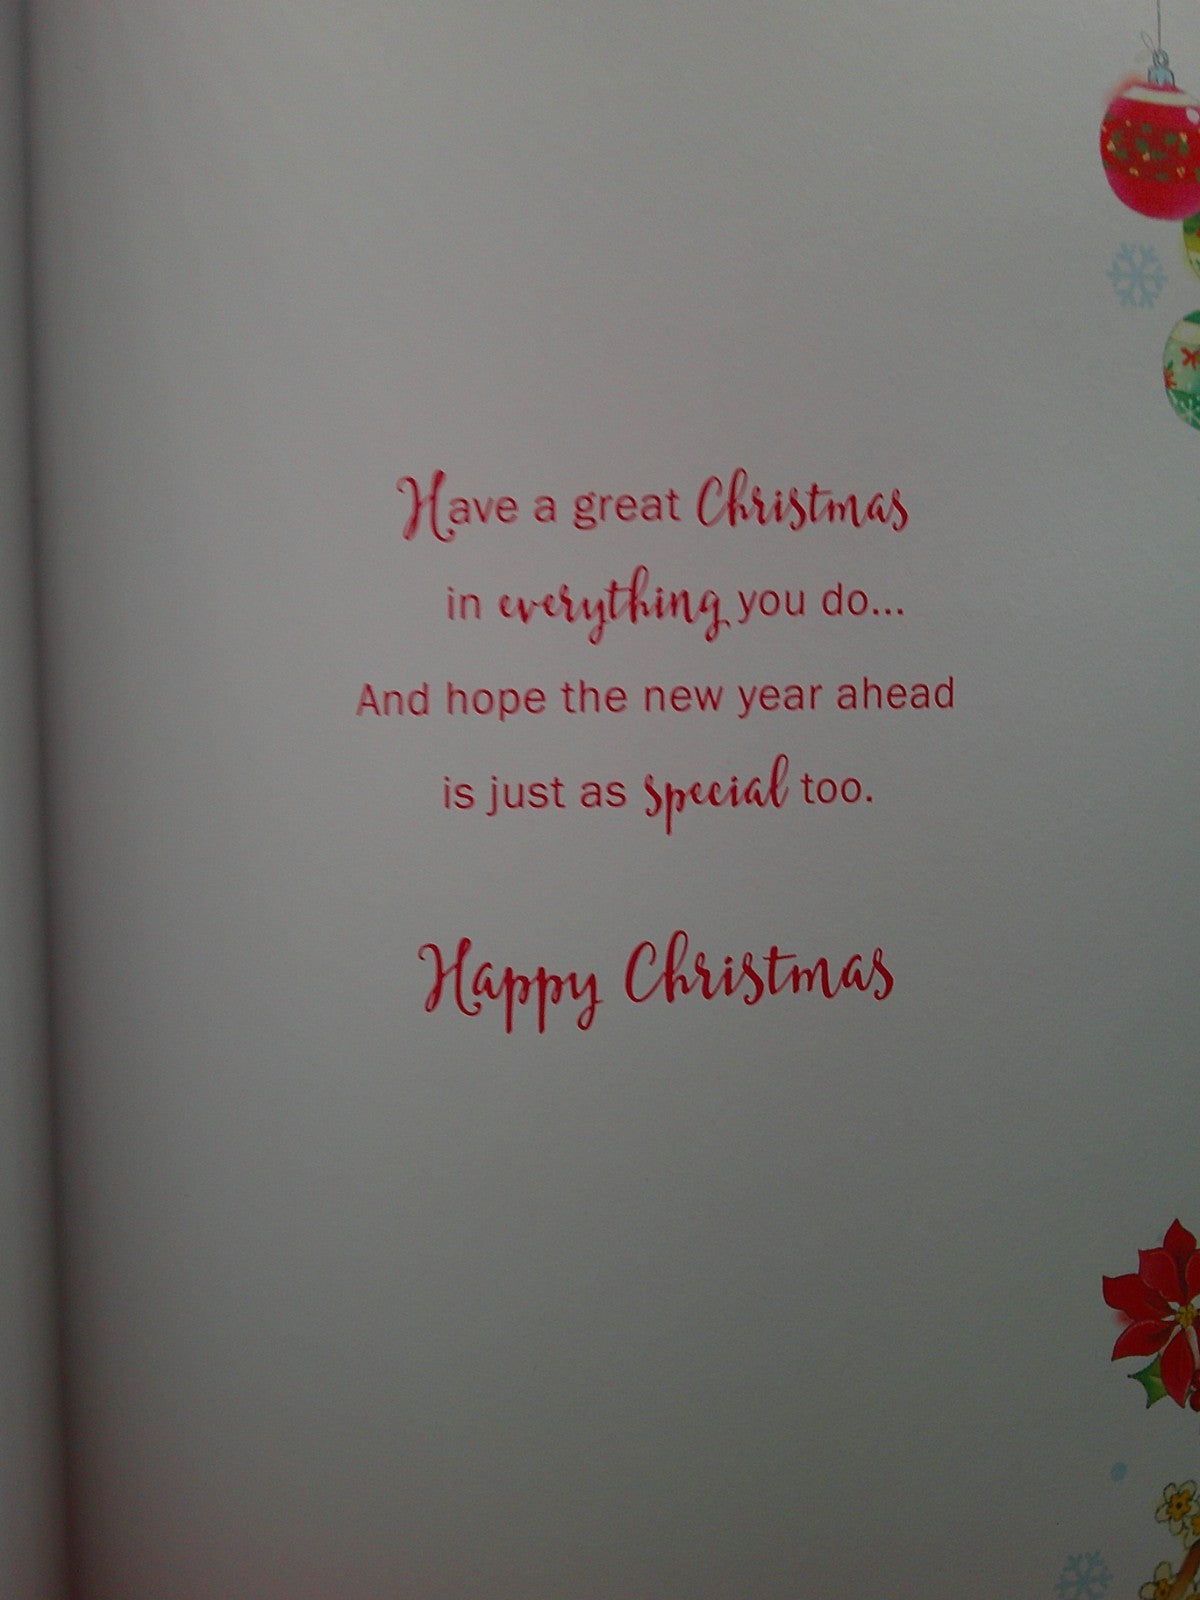 Have a great Christmas
in everything you do...
And hope the new year ahead
is just as special too.
Happy Christmas